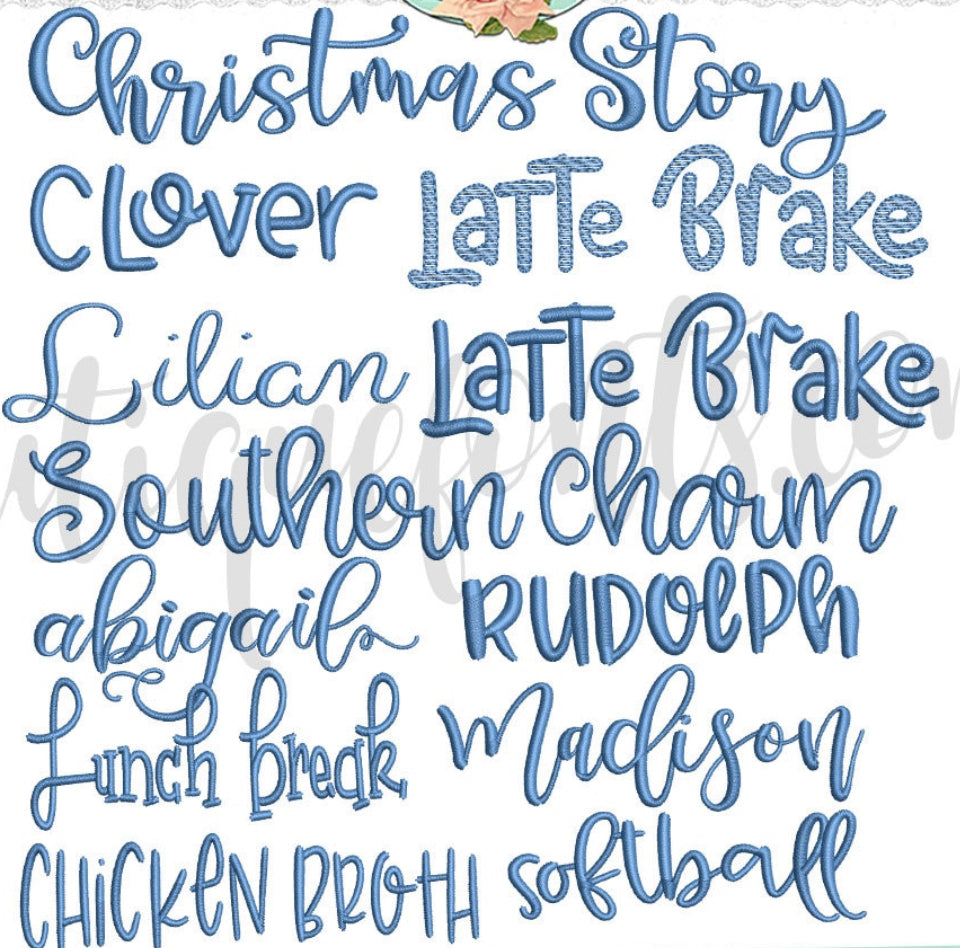 Christmas Story
CLover LaTTe Brake
Lilian LaTTe Brake
Southern Charm
abigail RUDOLPh
Lunch break Madison
CHiCKeN BROTH softball